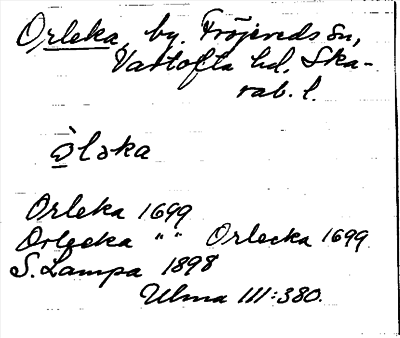 Orleka, by. Fröjereds sn,
Vartofta hd. Ska-
rab. l.
òləka
Orleka 1699
Orleeka " " Orlecka 1699
S. Lampa 1898
Ulma 111:380.